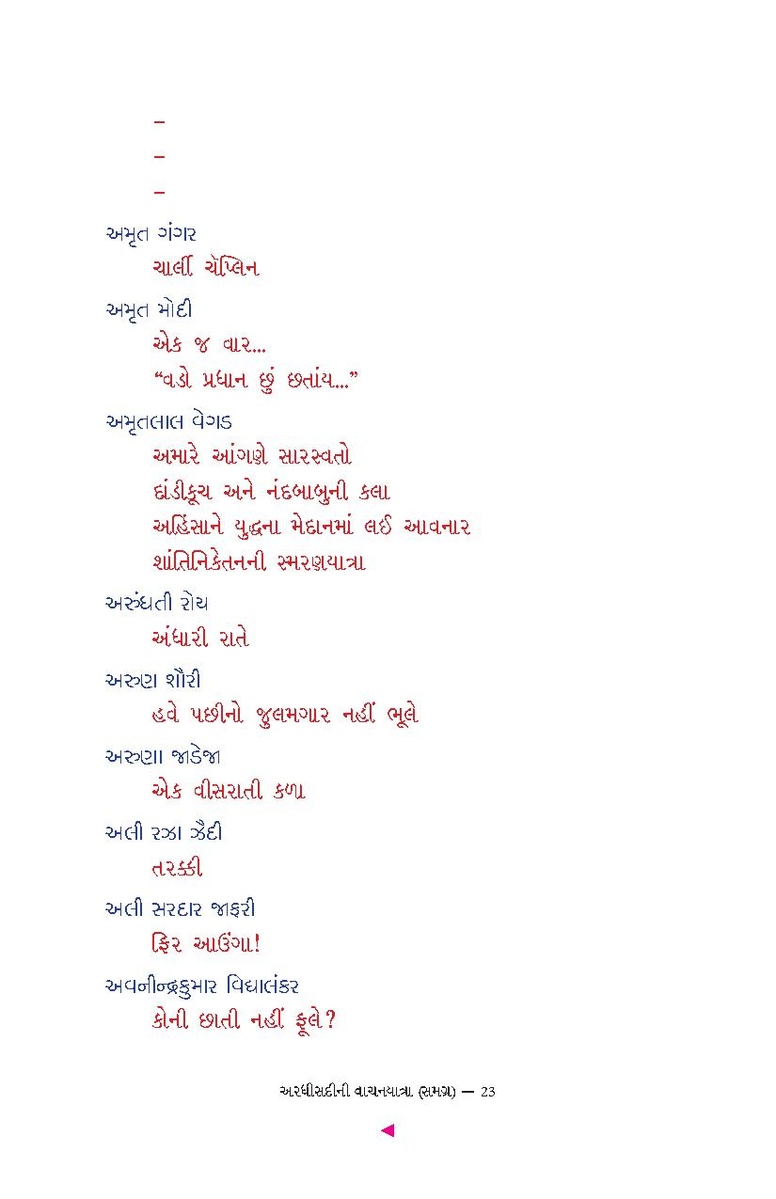 –
–
–
અમૃત ગંગર
ચાર્લી ચૅપ્લિન
અમૃત મોદી
એક જ વાર...
“વડો પ્રધાન છું છતાંય...”
અમૃતલાલ વેગડ
અમારે આંગણે સારસ્વતો
દાંડીકૂચ અને નંદબાબુની કલા
અહિંસાને યુદ્ધના મેદાનમાં લઈ આવનાર
શાંતિનિકેતનની સ્મરણયાત્રા
અરુંધતી રોય
અંધારી રાતે
અરુણ શૌરી
હવે પછીનો જુલમગાર નહીં ભૂલે
અરુણા જાડેજા
એક વીસરાતી કળા
અલી રઝા ઝૈદી
તરક્કી
અલી સરદાર જાફરી
ફિર આઉંગા!
અવનીન્દ્રકુમાર વિદ્યાલંકર
કોની છાતી નહીં ફૂલે?
અરધીસદીની વાચનયાત્રા (સમગ્ર) — 23